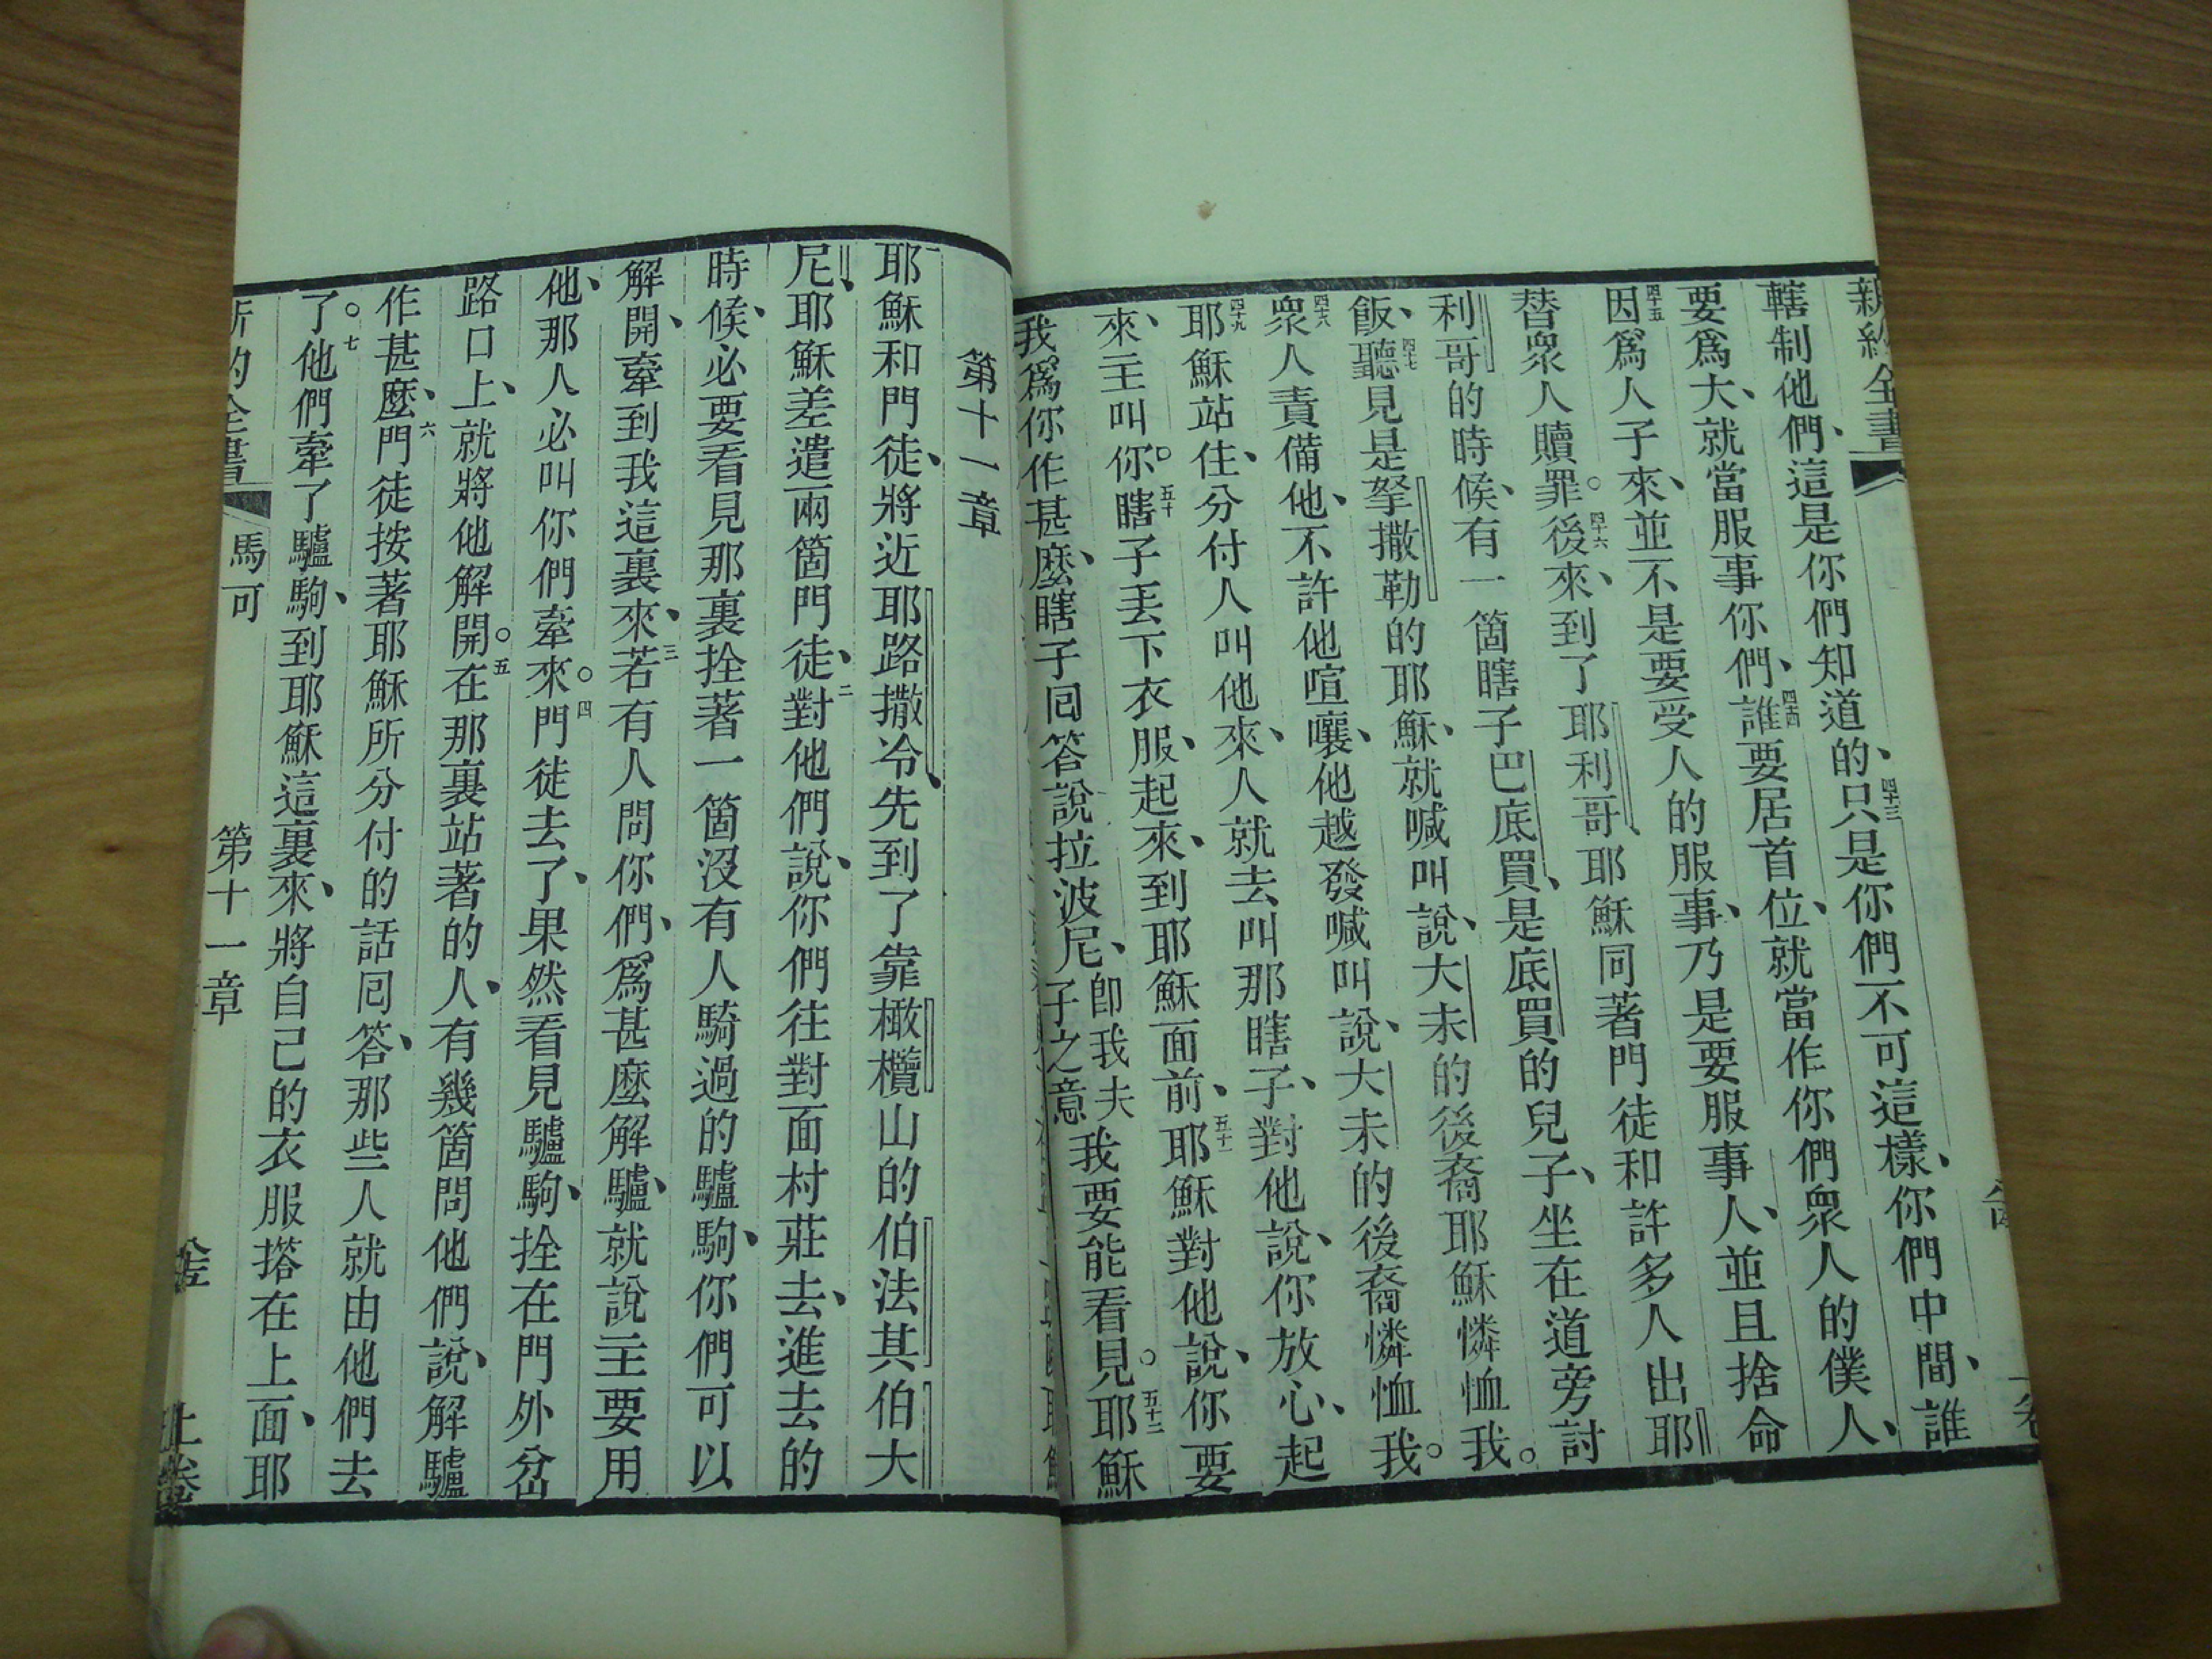 轄制他們、這是你們知道的、四十三只是你們不可這樣、你們中間、誰
要爲大、就當服事你們、四十四誰要居首位、就當作你們衆人的僕人、
四十五因爲人子來、並不是要受人的服事、乃是要服事人、並且捨命
替衆人贖罪。四十六後來、到了耶利哥、耶穌同著門徒和許多人出耶
利哥的時候、有一箇瞎子巴底買、是底買的兒子、坐在道旁討
飯、四十七聽見是拏撒勒的耶穌、就喊叫說、大未的後裔耶穌憐恤我。
四十八衆人責備他、不許他喧嚷、他越發喊叫說、大未的後裔憐恤我。
四十九耶穌站住、分付人叫他來、人就去叫那瞎子、對他說、你放心、起
來、主叫你。五十瞎子丟下衣服、起來、到耶穌面前、五十一耶穌對他說、你要
我爲你作甚麼、瞎子回答說拉波尼、卽我夫子之意我要能看見。五十二耶穌
第十一章
一耶穌和門徒、將近耶路撒冷、先到了靠橄欖山的伯法其伯大
尼、耶穌差遣兩箇門徒、二對他們說、你們往對面村莊去、進去的
時候、必要看見那裏拴著一箇沒有人騎過的驢駒、你們可以
解開、牽到我這裏來、三若有人問你們、爲甚麼解驢、就說主要用
他、那人必叫你們牽來。四門徒去了、果然看見驢駒、拴在門外岔
路口上、就將他解開。五在那裏站著的人、有幾箇問他們說、解驢
作甚麼、六門徒按著耶穌所分付的話回答、那些人就由他們去
了。七他們牽了驢駒、到耶穌這裏來、將自己的衣服搭在上面、耶
馬可 第十一章 上卷